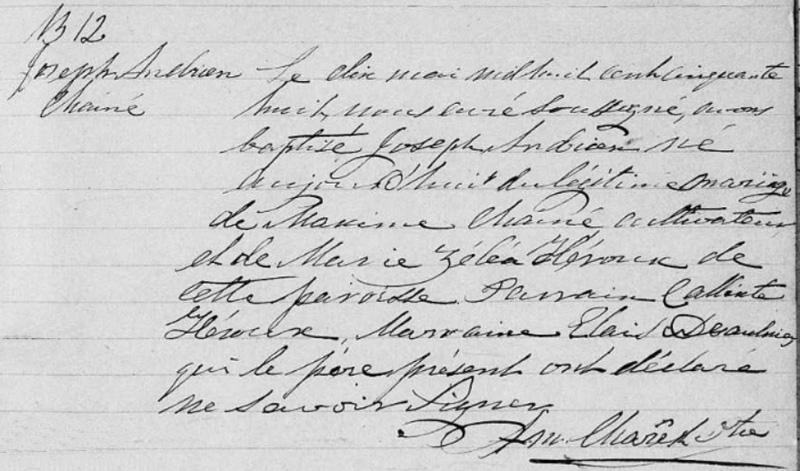 B12
Joseph Andrien
Chainé
Le dix mai mil huit cent cinquante
huit, nous curé soussigné, avons
baptisé Joseph Andrien né
aujourd'hui du légitime mariage
de Maxime Chainé, cultivateur,
et de Marie Zéléa Héroux de
cette paroisse Parrain Callixte
Héroux, Marraine Elais Desaulniers
qui le père présent ont déclaré
ne savoir signer
Ptre